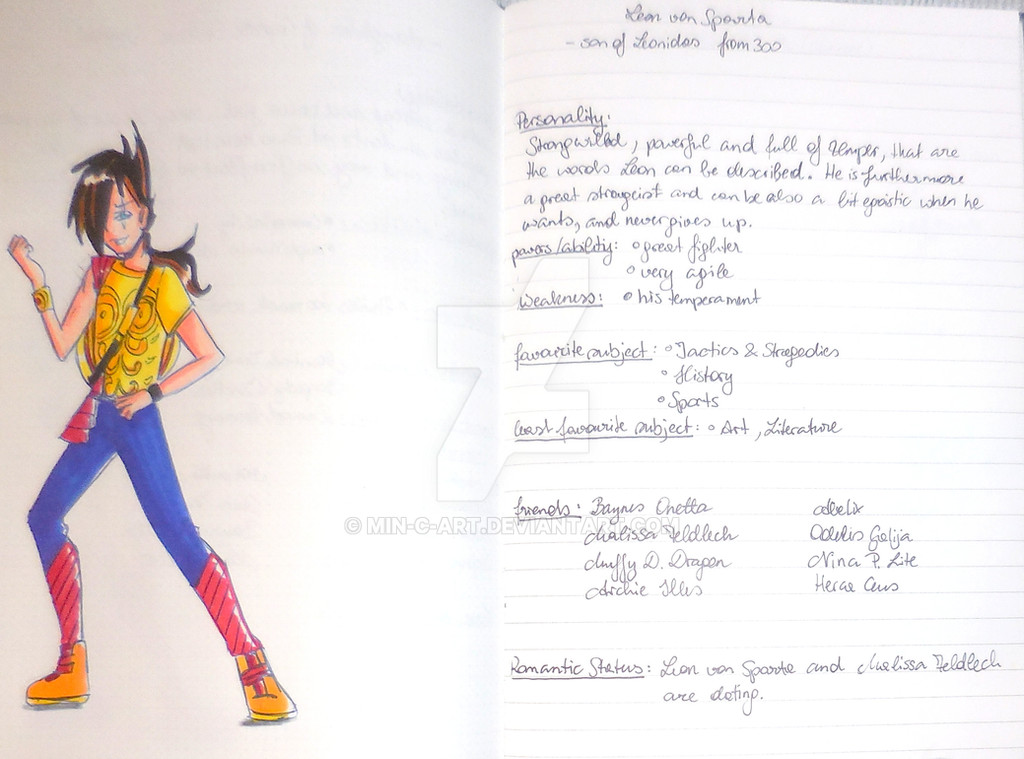 Leon von Sparta
- son of Leonidas from 300
Personality:
Strongwilled, powerful and full of temper, that are
the words Leon can be described. He is furthermore
a great and can be also a bit egoistic when he
wants, and never gives up.
powers/ability: • great fighter
• very agile
Weakness: • his temperament
favourite subject: • Tactics & Stragedies
• History
• Sports
least favourite subject: • Art, Literature
© MIN-C-ART.DEVIANTART.COM
friends: Baynes Onetta
Malissa Feldlech
D. Dragon
Archie
Nina P. Lite
Romantic Status: Leon von Sparta and Malissa Feldlech
are dating.